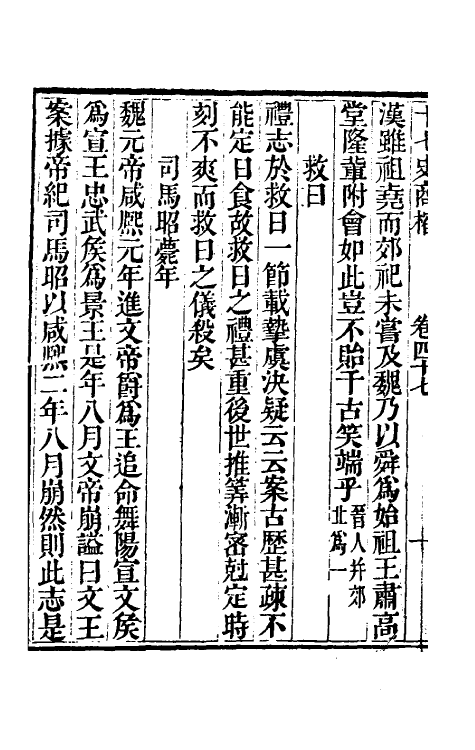 十七史商榷　卷四十七　十
漢雖祖堯而郊祀未嘗及魏乃以舜爲始祖王肅高
堂隆輩附會如此豈不貽千古笑端乎晉人并郊丘爲一
救日
禮志於救日一節載摯虞決疑云云案古歷甚疎不
能定日食故救日之禮甚重後世推筭漸密尅定時
刻不爽而救日之儀殺矣
司馬昭薨年
魏元帝咸熙元年進文帝爵爲王追命舞陽宣文矦
爲宣王忠武矦爲景王是年八月文帝崩謚曰文王
案據帝紀司馬昭以咸熙二年八月崩然則此志是